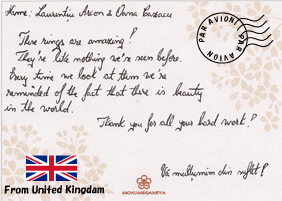 Name: Laurentiu Arion & Oana
PAR AVION PAR AVION
These rings are amazing!
They're like nothing we've seen before.
Every time we look at them we're
reminded of the fact that there is beauty
in the world.
Thank you for all your hard work!
Vă mulțumim din suflet!
From United Kingdom
MOKUMEGANEYA